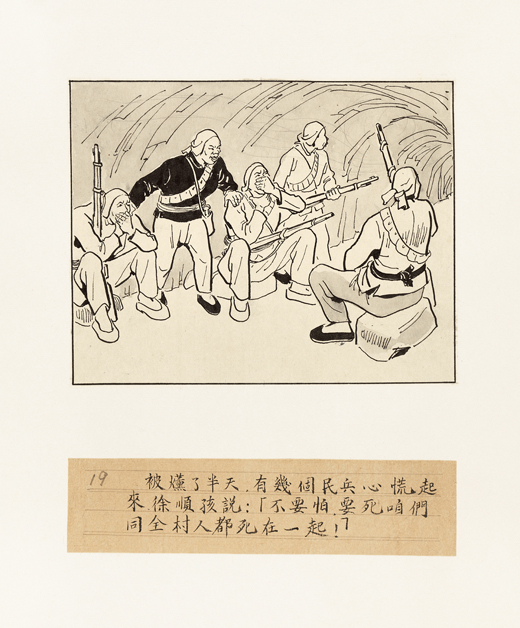 19
被燻了半天,有幾個民兵心慌起
來,徐順孩説:「不要怕,要死咱們
同全村人都死在一起!」